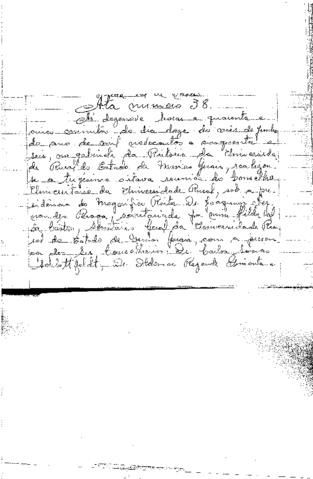 Ata número 38.
Às dezenove horas e quarenta e
cinco minutos do dia doze do mês de junho
do ano de mil novecentos e cinquenta e
seis, no gabinete da Reitoria da Universida-
de Rural do Estado de Minas Gerais, realizou-
se a trigésima oitava reunião do Conselho
Universitário da Universidade Rural, sob a pre-
sidência do Magnífico Reitor Dr. Joaquim
Braga, secretariada por mim
de Castro, Secretário Geral da Universidade Ru-
ral do Estado de Minas Gerais, com a presen-
ça dos Srs. Conselheiros: Dr. Carlos
Schlottfeldt, Dr. Rezende Pimenta e